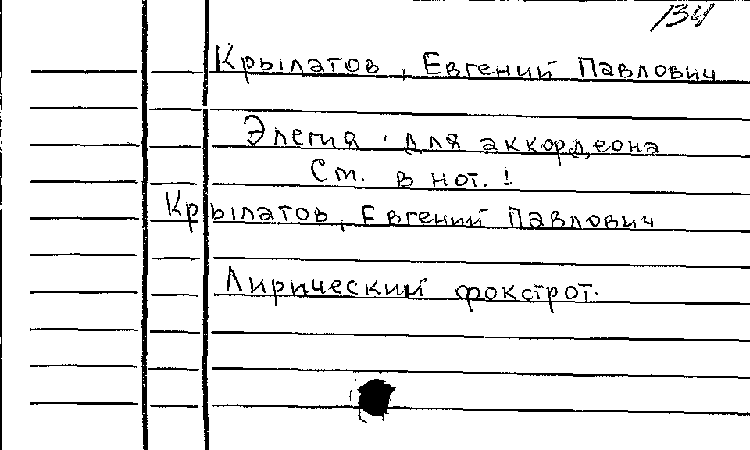 134
Крылатов, Евгений Павлович
Элегия. для аккордеона
См. в нот.!
Крылатов, Евгений Павлович
Лирический фокстрот.